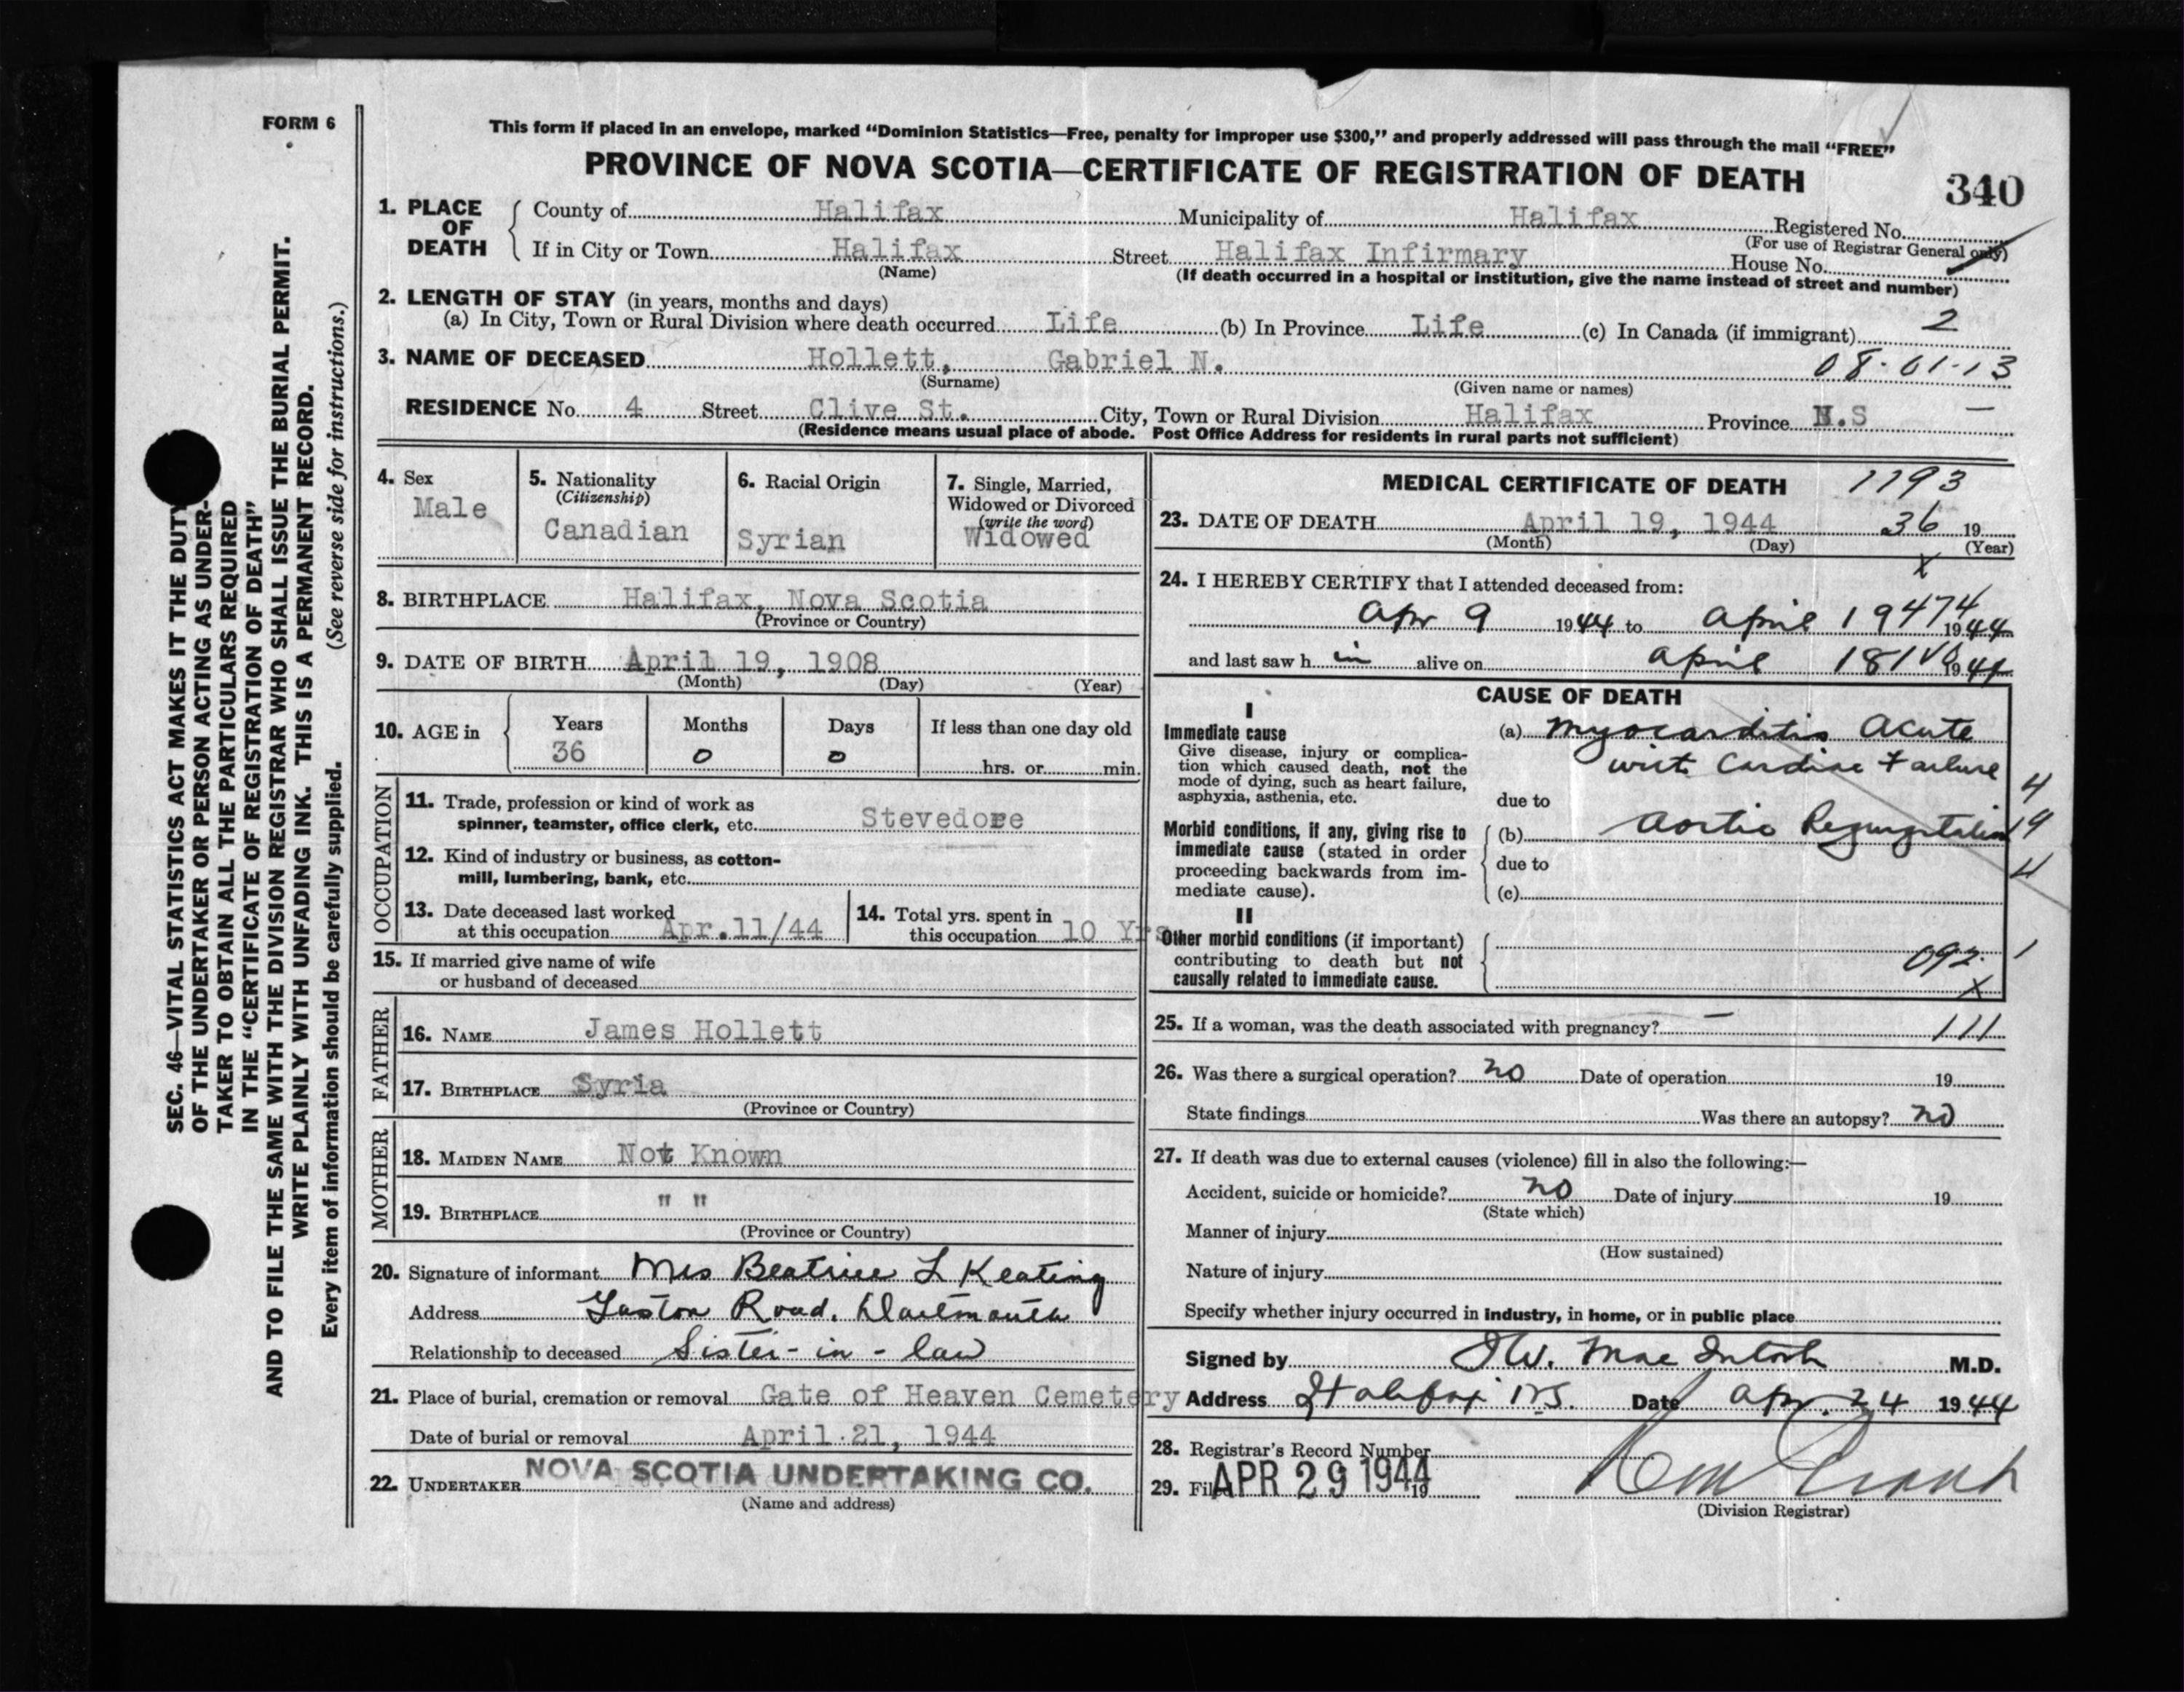 FORM 6
This form if placed in an envelope, marked “Dominion Statistics—Free, penalty for improper use $300,” and properly addressed will pass through the mail “FREE”
PROVINCE OF NOVA SCOTIA—CERTIFICATE OF REGISTRATION OF DEATH
340
1. PLACE OF DEATH
County of Halifax Municipality of Halifax Registered No.
(For use of Registrar General only)
If in City or Town Halifax Street Halifax Infirmary House No.
(Name) (If death occurred in a hospital or institution, give the name instead of street and number)
2. LENGTH OF STAY (in years, months and days)
(a) In City, Town or Rural Division where death occurred Life (b) In Province Life (c) In Canada (if immigrant) 2
3. NAME OF DECEASED Hollett, Gabriel N. 08-01-13
(Surname) (Given name or names)
RESIDENCE No. 4 Street Clive St. City, Town or Rural Division Halifax Province N.S —
(Residence means usual place of abode. Post Office Address for residents in rural parts not sufficient)
4. Sex
Male
5. Nationality
(Citizenship)
Canadian
6. Racial Origin
Syrian
7. Single, Married,
Widowed or Divorced
(write the word)
Widowed
8. BIRTHPLACE Halifax, Nova Scotia
(Province or Country)
9. DATE OF BIRTH April 19, 1908
(Month) (Day) (Year)
10. AGE in
Years Months Days If less than one day old
36 0 0 hrs. or min.
OCCUPATION
11. Trade, profession or kind of work as
spinner, teamster, office clerk, etc. Stevedore
12. Kind of industry or business, as cotton-
mill, lumbering, bank, etc.
13. Date deceased last worked
at this occupation Apr.11/44
14. Total yrs. spent in
this occupation 10 Yrs
15. If married give name of wife
or husband of deceased
FATHER
16. NAME James Hollett
17. BIRTHPLACE Syria
(Province or Country)
MOTHER
18. MAIDEN NAME Not Known
19. BIRTHPLACE " "
(Province or Country)
20. Signature of informant Mrs Beatrice L Keating
Address Gaston Road, Dartmouth
Relationship to deceased Sister-in-law
21. Place of burial, cremation or removal Gate of Heaven Cemetery
Date of burial or removal April 21, 1944
22. UNDERTAKER NOVA SCOTIA UNDERTAKING CO.
(Name and address)
MEDICAL CERTIFICATE OF DEATH 1193
23. DATE OF DEATH April 19, 1944 36 19
(Month) (Day) (Year)
x
24. I HEREBY CERTIFY that I attended deceased from:
Apr 9 1944 to April 19 474 1944
and last saw h im alive on April 18 1944
CAUSE OF DEATH
I
Immediate cause
Give disease, injury or complica-
tion which caused death, not the
mode of dying, such as heart failure,
asphyxia, asthenia, etc.
(a) Myocarditis Acute
with Cardiac Failure
4
due to
Morbid conditions, if any, giving rise to
immediate cause (stated in order
proceeding backwards from im-
mediate cause).
(b) Aortic Regurgitation 19
due to
4
(c)
II
Other morbid conditions (if important)
contributing to death but not
causally related to immediate cause.
092 1
x
25. If a woman, was the death associated with pregnancy? — 111
26. Was there a surgical operation? no Date of operation 19
State findings Was there an autopsy? no
27. If death was due to external causes (violence) fill in also the following:—
Accident, suicide or homicide? no Date of injury 19
(State which)
Manner of injury
(How sustained)
Nature of injury
Specify whether injury occurred in industry, in home, or in public place
Signed by W. MacIntosh M.D.
Address Halifax N.S. Date Apr. 24 1944
28. Registrar's Record Number
29. Filed APR 29 1944 19
(Division Registrar)
SEC. 46—VITAL STATISTICS ACT MAKES IT THE DUTY
OF THE UNDERTAKER OR PERSON ACTING AS UNDER-
TAKER TO OBTAIN ALL THE PARTICULARS REQUIRED
IN THE “CERTIFICATE OF REGISTRATION OF DEATH”
AND TO FILE THE SAME WITH THE DIVISION REGISTRAR WHO SHALL ISSUE THE BURIAL PERMIT.
WRITE PLAINLY WITH UNFADING INK. THIS IS A PERMANENT RECORD.
Every item of information should be carefully supplied. (See reverse side for instructions.)